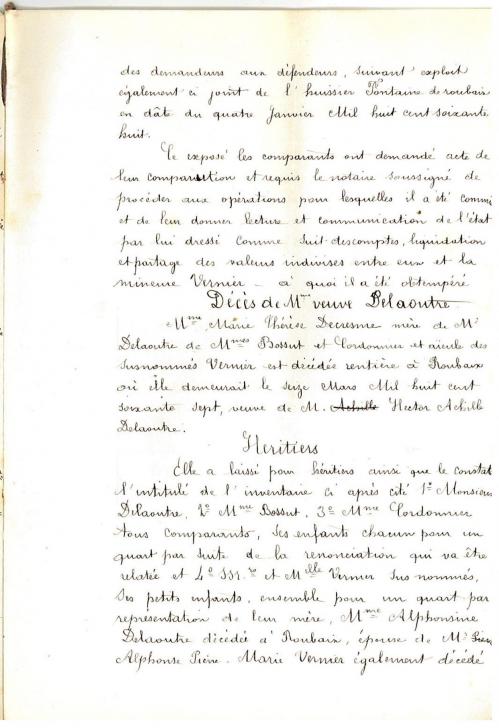 des demandeurs aux défendeurs, suivant exploit
également ci joint de l'huissier Fontaine de roubaix
en dâte du quatre Janvier Mil huit cent soixante
huit.
Ce exposé les comparants ont demandé acte de
leur comparution et requis le notaire soussigné de
procéder aux opérations pour lesquelles il a été commis
et de leur donner lecture et communication de l'état
par lui dressé comme suit des comptes, liquidation
et partage des valeurs indivises entre eux et la
mineure Vernier — à quoi il a été obtempéré
Décès de Mme veuve Delaoutre
Mme Marie Thérèse Decresme mère de Mr
Delaoutre de Mmes Bossut et Cordonnier et aïeule des
susnommés Vernier est décédée rentière à Roubaix
où elle demeurait le seize Mars Mil huit cent
soixante sept, veuve de M. Achille Hector Achille
Delaoutre.
Heritiers
Elle a laissé pour héritiers ainsi que le constate
l'intitulé de l'inventaire ci après cité 1º Monsieur
Delaoutre, 2º Mme Bossut, 3º Mme Cordonnier
tous comparants, ses enfants chacun pour un
quart par suite de la renonciation qui va être
relatée et 4º Mr et Melle Vernier sus nommés,
ses petits enfants, ensemble pour un quart par
représentation de leur mère, Mme Alphonsine
Delaoutre décédée à Roubaix, épouse de Mr
Alphonse Pierre Marie Vernier également décédé